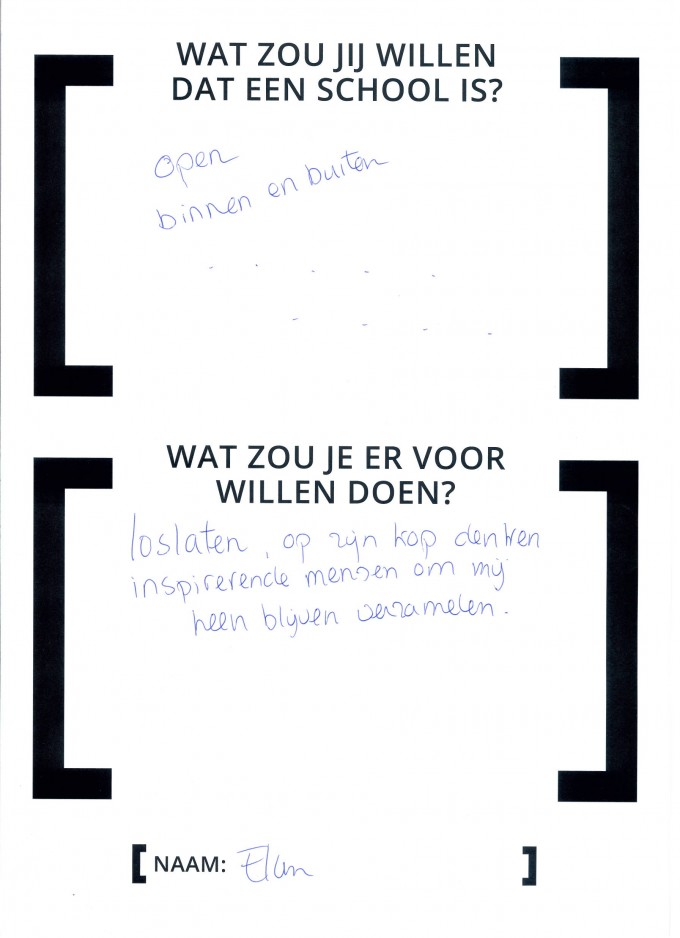 WAT ZOU JIJ WILLEN
DAT EEN SCHOOL IS?
open
binnen en buiten
WAT ZOU JE ER VOOR
WILLEN DOEN?
loslaten, op zijn kop denken
inspirerende mensen om mij
heen blijven verzamelen.
NAAM: